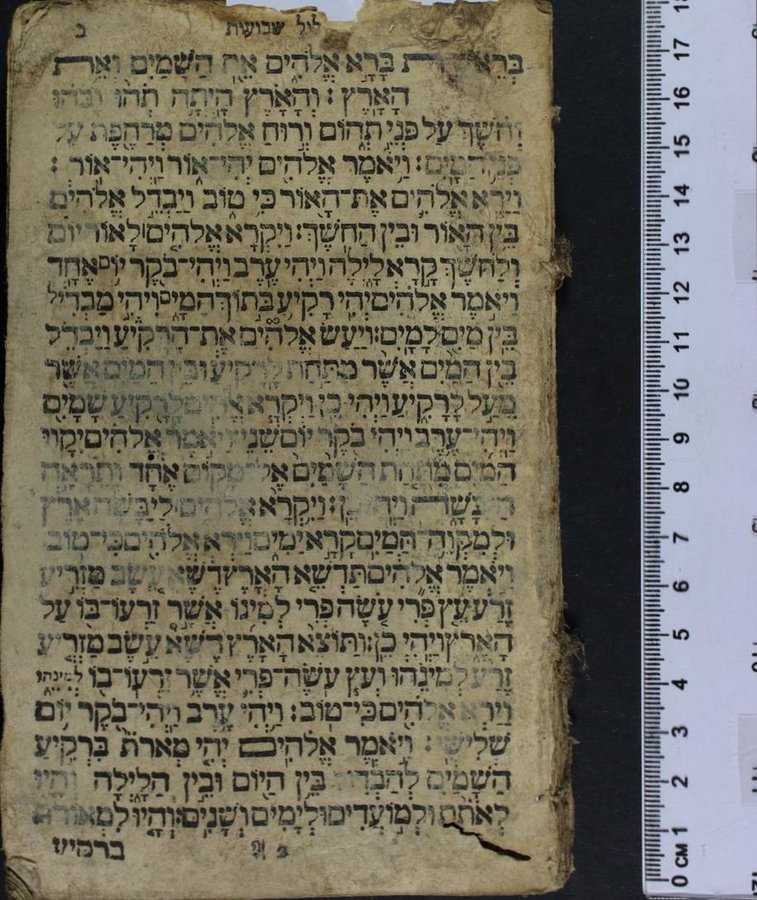 ליל שבועות ב
בְּרֵאשִׁית בָּרָא אֱלֹהִים אֵת הַשָּׁמַיִם וְאֵת
הָאָרֶץ׃ וְהָאָרֶץ הָיְתָה תֹהוּ וָבֹהוּ
וְחֹשֶׁךְ עַל פְּנֵי תְהוֹם וְרוּחַ אֱלֹהִים מְרַחֶפֶת עַל
פְּנֵי הַמָּיִם׃ וַיֹּאמֶר אֱלֹהִים יְהִי־אוֹר וַיְהִי־אוֹר׃
וַיַּרְא אֱלֹהִים אֶת־הָאוֹר כִּי טוֹב וַיַּבְדֵּל אֱלֹהִים
בֵּין הָאוֹר וּבֵין הַחֹשֶׁךְ׃ וַיִּקְרָא אֱלֹהִים׀לָאוֹר יוֹם
וְלַחֹשֶׁךְ קָרָא לָיְלָה וַיְהִי עֶרֶב וַיְהִי־בֹקֶר יוֹם אֶחָד
וַיֹּאמֶר אֱלֹהִים יְהִי רָקִיעַ בְּתוֹךְ הַמָּיִם וִיהִי מַבְדִּיל
בֵּין מַיִם לָמָיִם׃ וַיַּעַשׂ אֱלֹהִים אֶת־הָרָקִיעַ וַיַּבְדֵּל
בֵּין הַמַּיִם אֲשֶׁר מִתַּחַת לָרָקִיעַ וּבֵין הַמַּיִם אֲשֶׁר
מֵעַל לָרָקִיעַ וַיְהִי־כֵן וַיִּקְרָא אֱלֹהִים לָרָקִיעַ שָׁמָיִם
וַיְהִי־עֶרֶב וַיְהִי בֹקֶר יוֹם שֵׁנִי וַיֹּאמֶר אֱלֹהִים יִקָּווּ
הַמַּיִם מִתַּחַת הַשָּׁמַיִם אֶל־מָקוֹם אֶחָד וְתֵרָאֶה
הַיַּבָּשָׁה וַיְהִי־כֵן׃ וַיִּקְרָא אֱלֹהִים׀לַיַּבָּשָׁה אֶרֶץ
וּלְמִקְוֵה הַמַּיִם קָרָא יַמִּים וַיַּרְא אֱלֹהִים כִּי־טוֹב
וַיֹּאמֶר אֱלֹהִים תַּדְשֵׁא הָאָרֶץ דֶּשֶׁא עֵשֶׂב מַזְרִיעַ
זֶרַע עֵץ פְּרִי עֹשֶׂה פְּרִי לְמִינוֹ אֲשֶׁר זַרְעוֹ־בוֹ עַל
הָאָרֶץ וַיְהִי כֵן׃ וַתּוֹצֵא הָאָרֶץ דֶּשֶׁא עֵשֶׂב מַזְרִיעַ
זֶרַע לְמִינֵהוּ וְעֵץ עֹשֶׂה־פְּרִי אֲשֶׁר זַרְעוֹ־בוֹ לְמִינֵהוּ
וַיַּרְא אֱלֹהִים כִּי־טוֹב׃ וַיְהִי עֶרֶב וַיְהִי־בֹקֶר יוֹם
שְׁלִישִׁי׃ וַיֹּאמֶר אֱלֹהִים יְהִי מְאֹרֹת בִּרְקִיעַ
הַשָּׁמַיִם לְהַבְדִּיל בֵּין הַיּוֹם וּבֵין הַלָּיְלָה וְהָיוּ
לְאֹתֹת וּלְמוֹעֲדִים וּלְיָמִים וְשָׁנִים׃ וְהָיוּ לִמְאוֹרֹת
ברקיע
0 CM 1 2 3 4 5 6 7 8 9 10 11 12 13 14 15 16 17